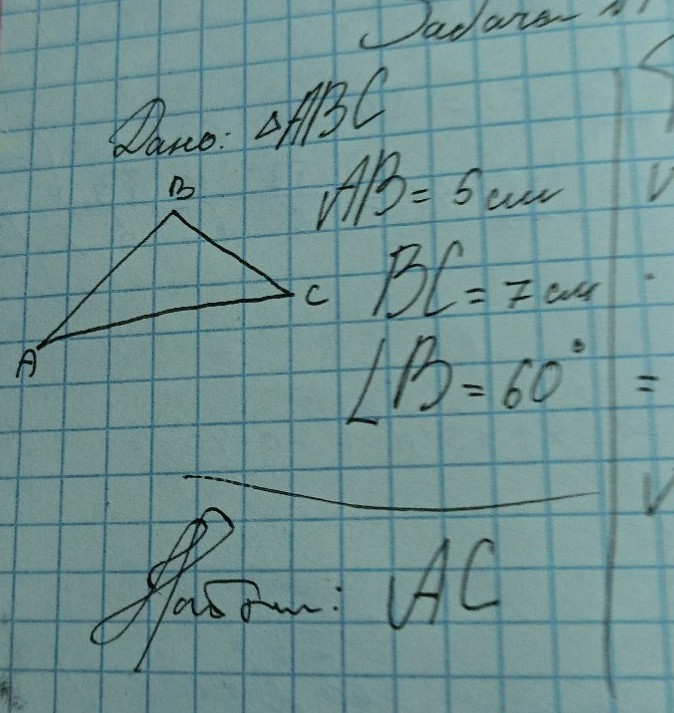 Задача
Дано: △ABC
B
AB = 5 см
C
BC = 7 см
A
∠B = 60°
=
Найти: AC